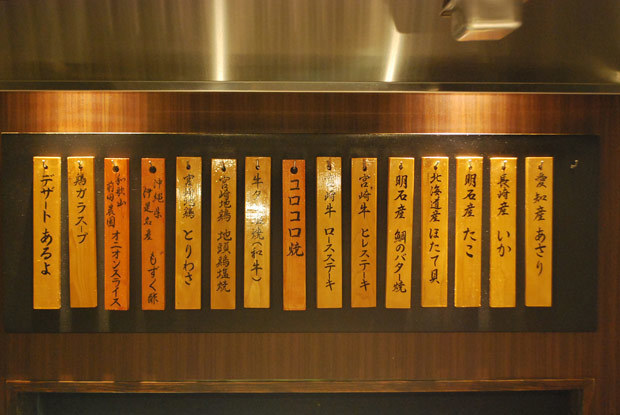 愛知産 あさり
長崎産 いか
明石産 たこ
北海道産 ほたて貝
明石産 鯛のバター焼
宮崎牛 ヒレステーキ
崎牛 ロースステーキ
コロコロ焼
牛タン 焼(和牛)
宮崎地鶏 地頭鶏塩焼
宮崎地鶏 とりわさ
沖縄県 伊是名産 もずく酢
和歌山 前田農園 オニオンスライス
鶏ガラスープ
デザート あるよ